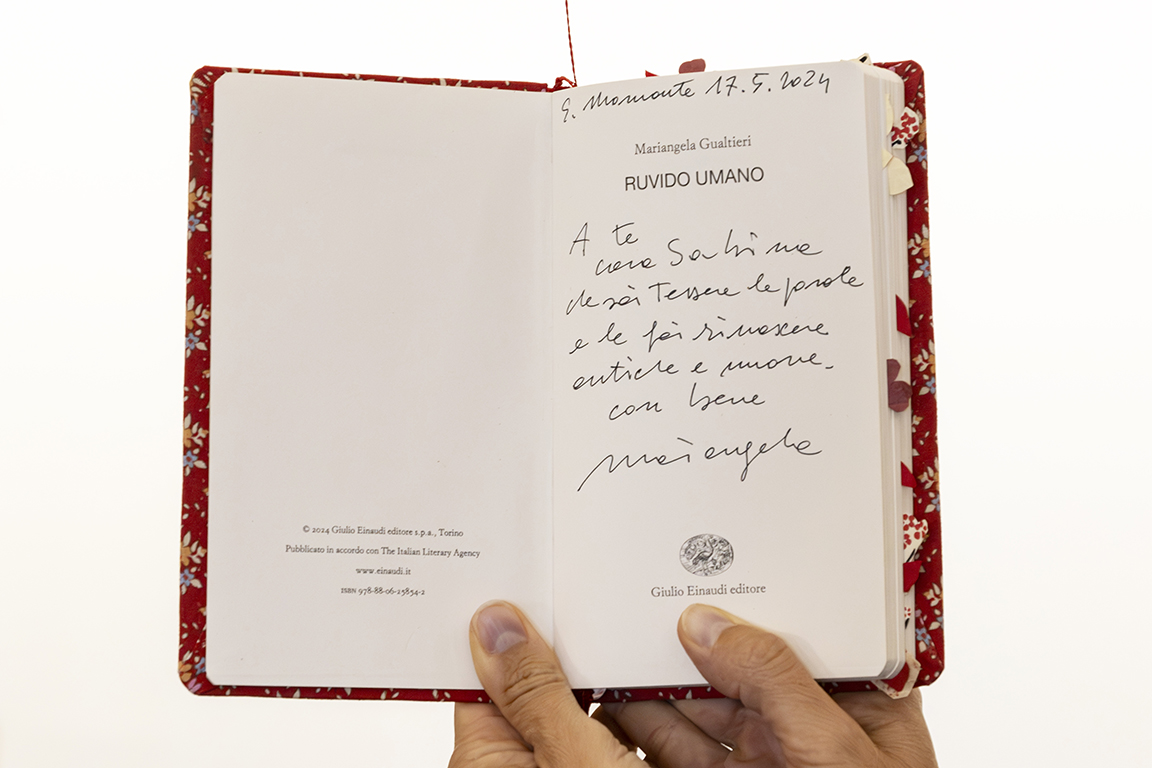 © 2024 Giulio Einaudi editore s.p.a., Torino
Pubblicato in accordo con The Italian Literary Agency
www.einaudi.it
ISBN 978-88-06-25854-2
17.5.2024
Mariangela Gualtieri
RUVIDO UMANO
A te
cara Sabina
che sai tessere le parole
e le fai rinascere
antiche e nuove.
con bene
Mariangela
Giulio Einaudi editore